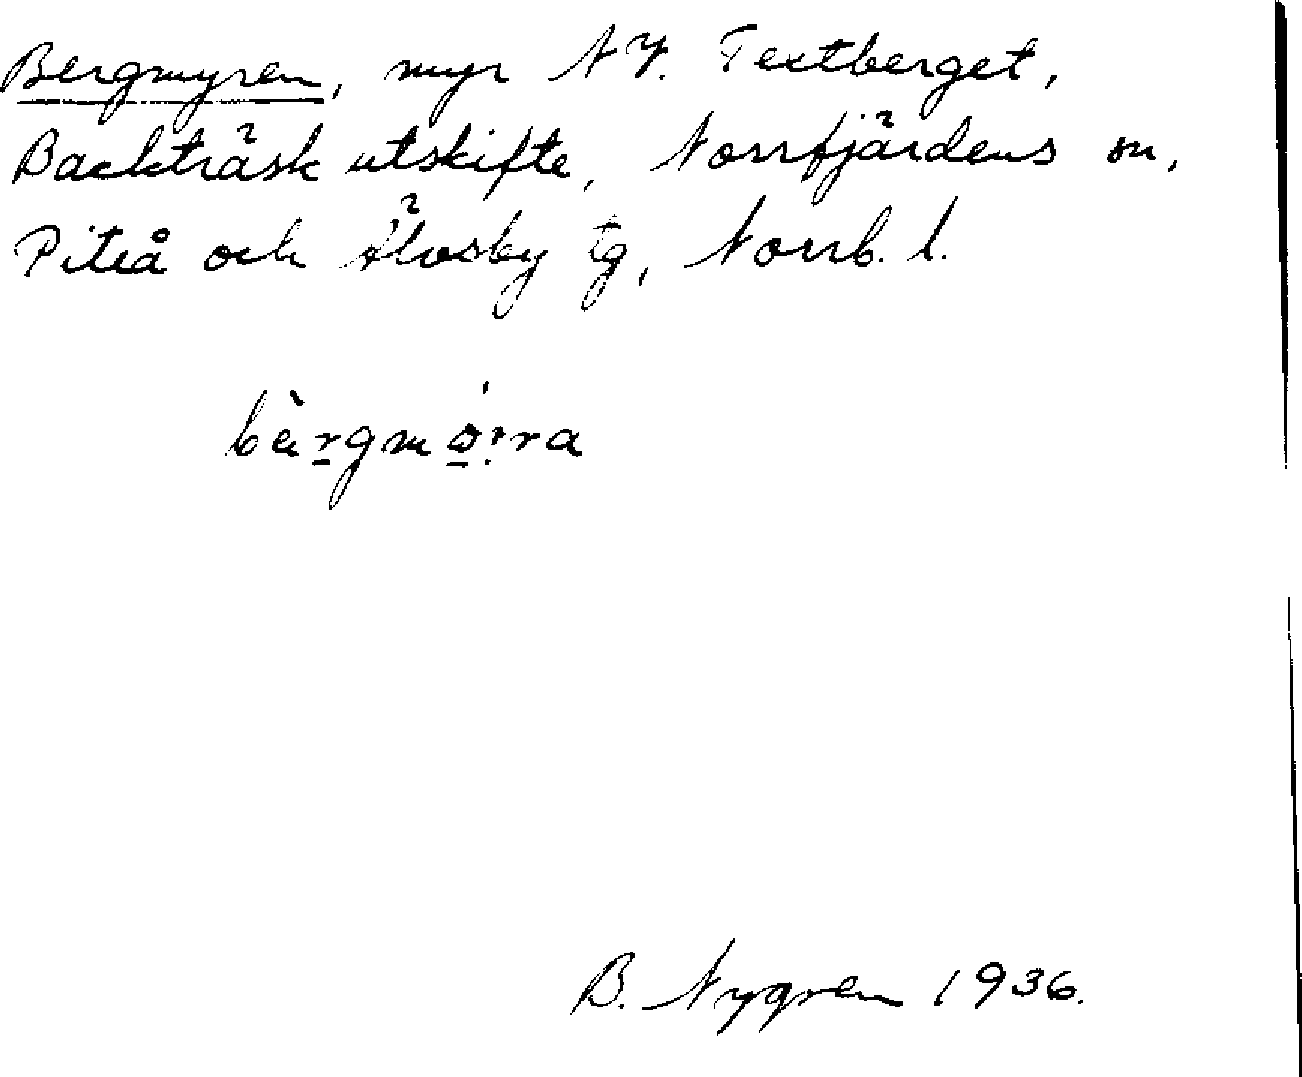 Bergmyren, myr NV. Textberget,
Backträsk utskifte, Norrfjärdens sn,
Piteå och Älvsby tg, Norrb. l.
bèrgmø̀rra
B. Nygren 1936.